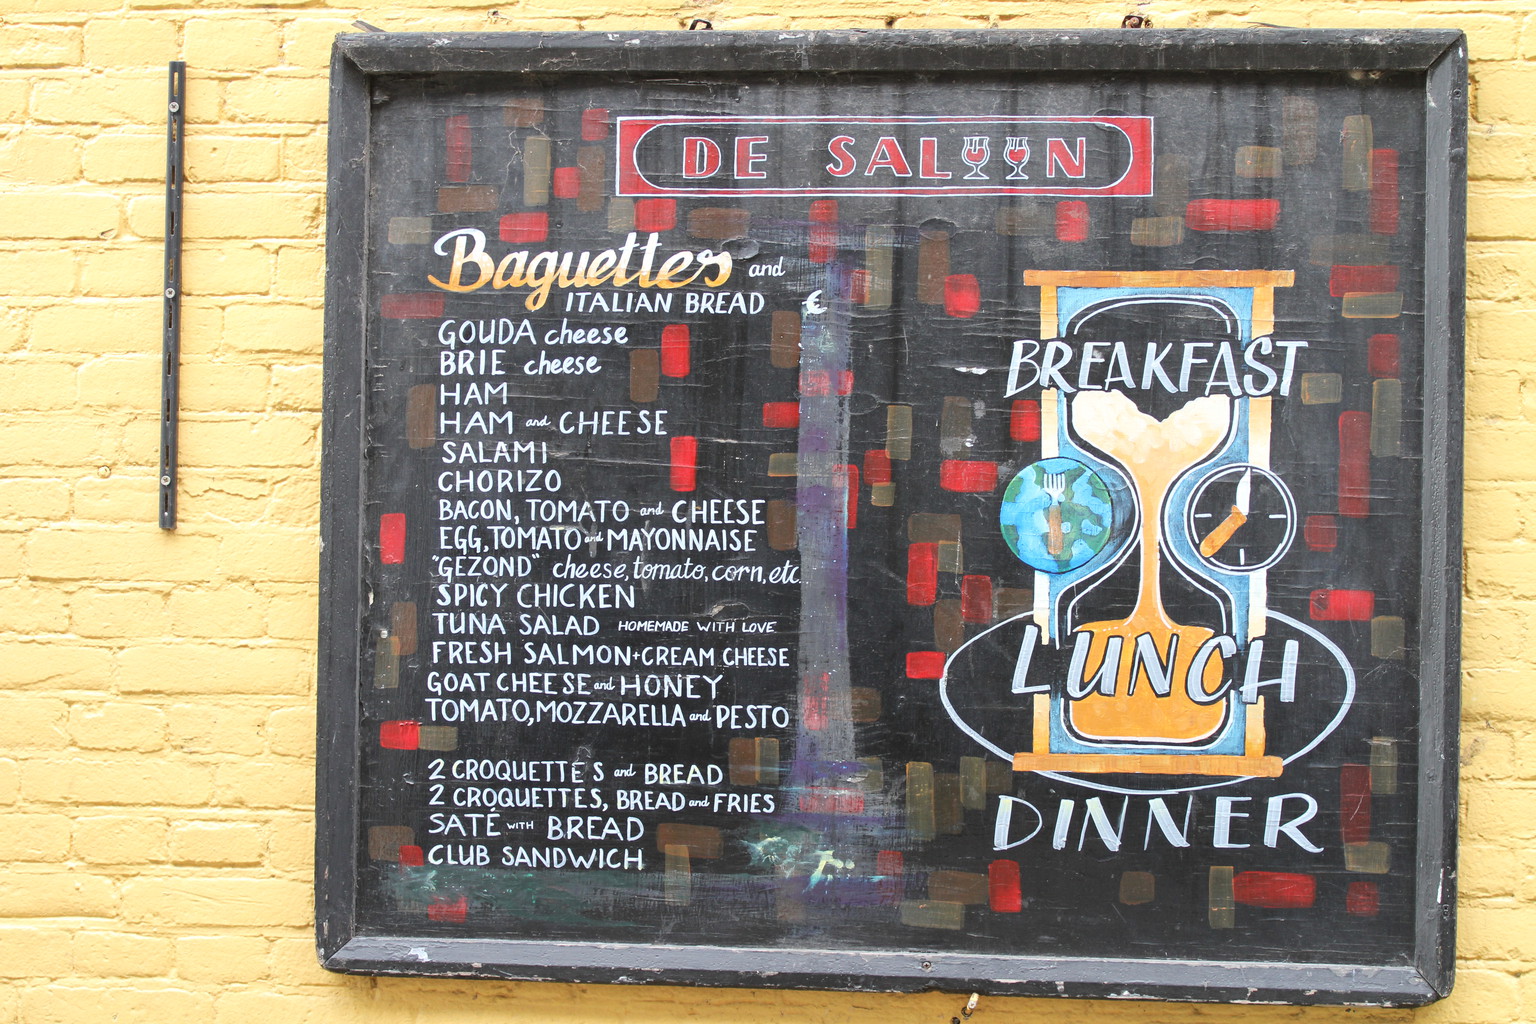 DE SALOON
Baguettes and
ITALIAN BREAD €
GOUDA cheese
BRIE cheese
HAM
HAM and CHEESE
SALAMI
CHORIZO
BACON, TOMATO and CHEESE
EGG, TOMATO and MAYONNAISE
"GEZOND" cheese, tomato, corn, etc.
SPICY CHICKEN
TUNA SALAD HOMEMADE WITH LOVE
FRESH SALMON+CREAM CHEESE
GOAT CHEESE and HONEY
TOMATO, MOZZARELLA and PESTO
2 CROQUETTES and BREAD
2 CROQUETTES, BREAD and FRIES
SATÉ WITH BREAD
CLUB SANDWICH
BREAKFAST
LUNCH
DINNER